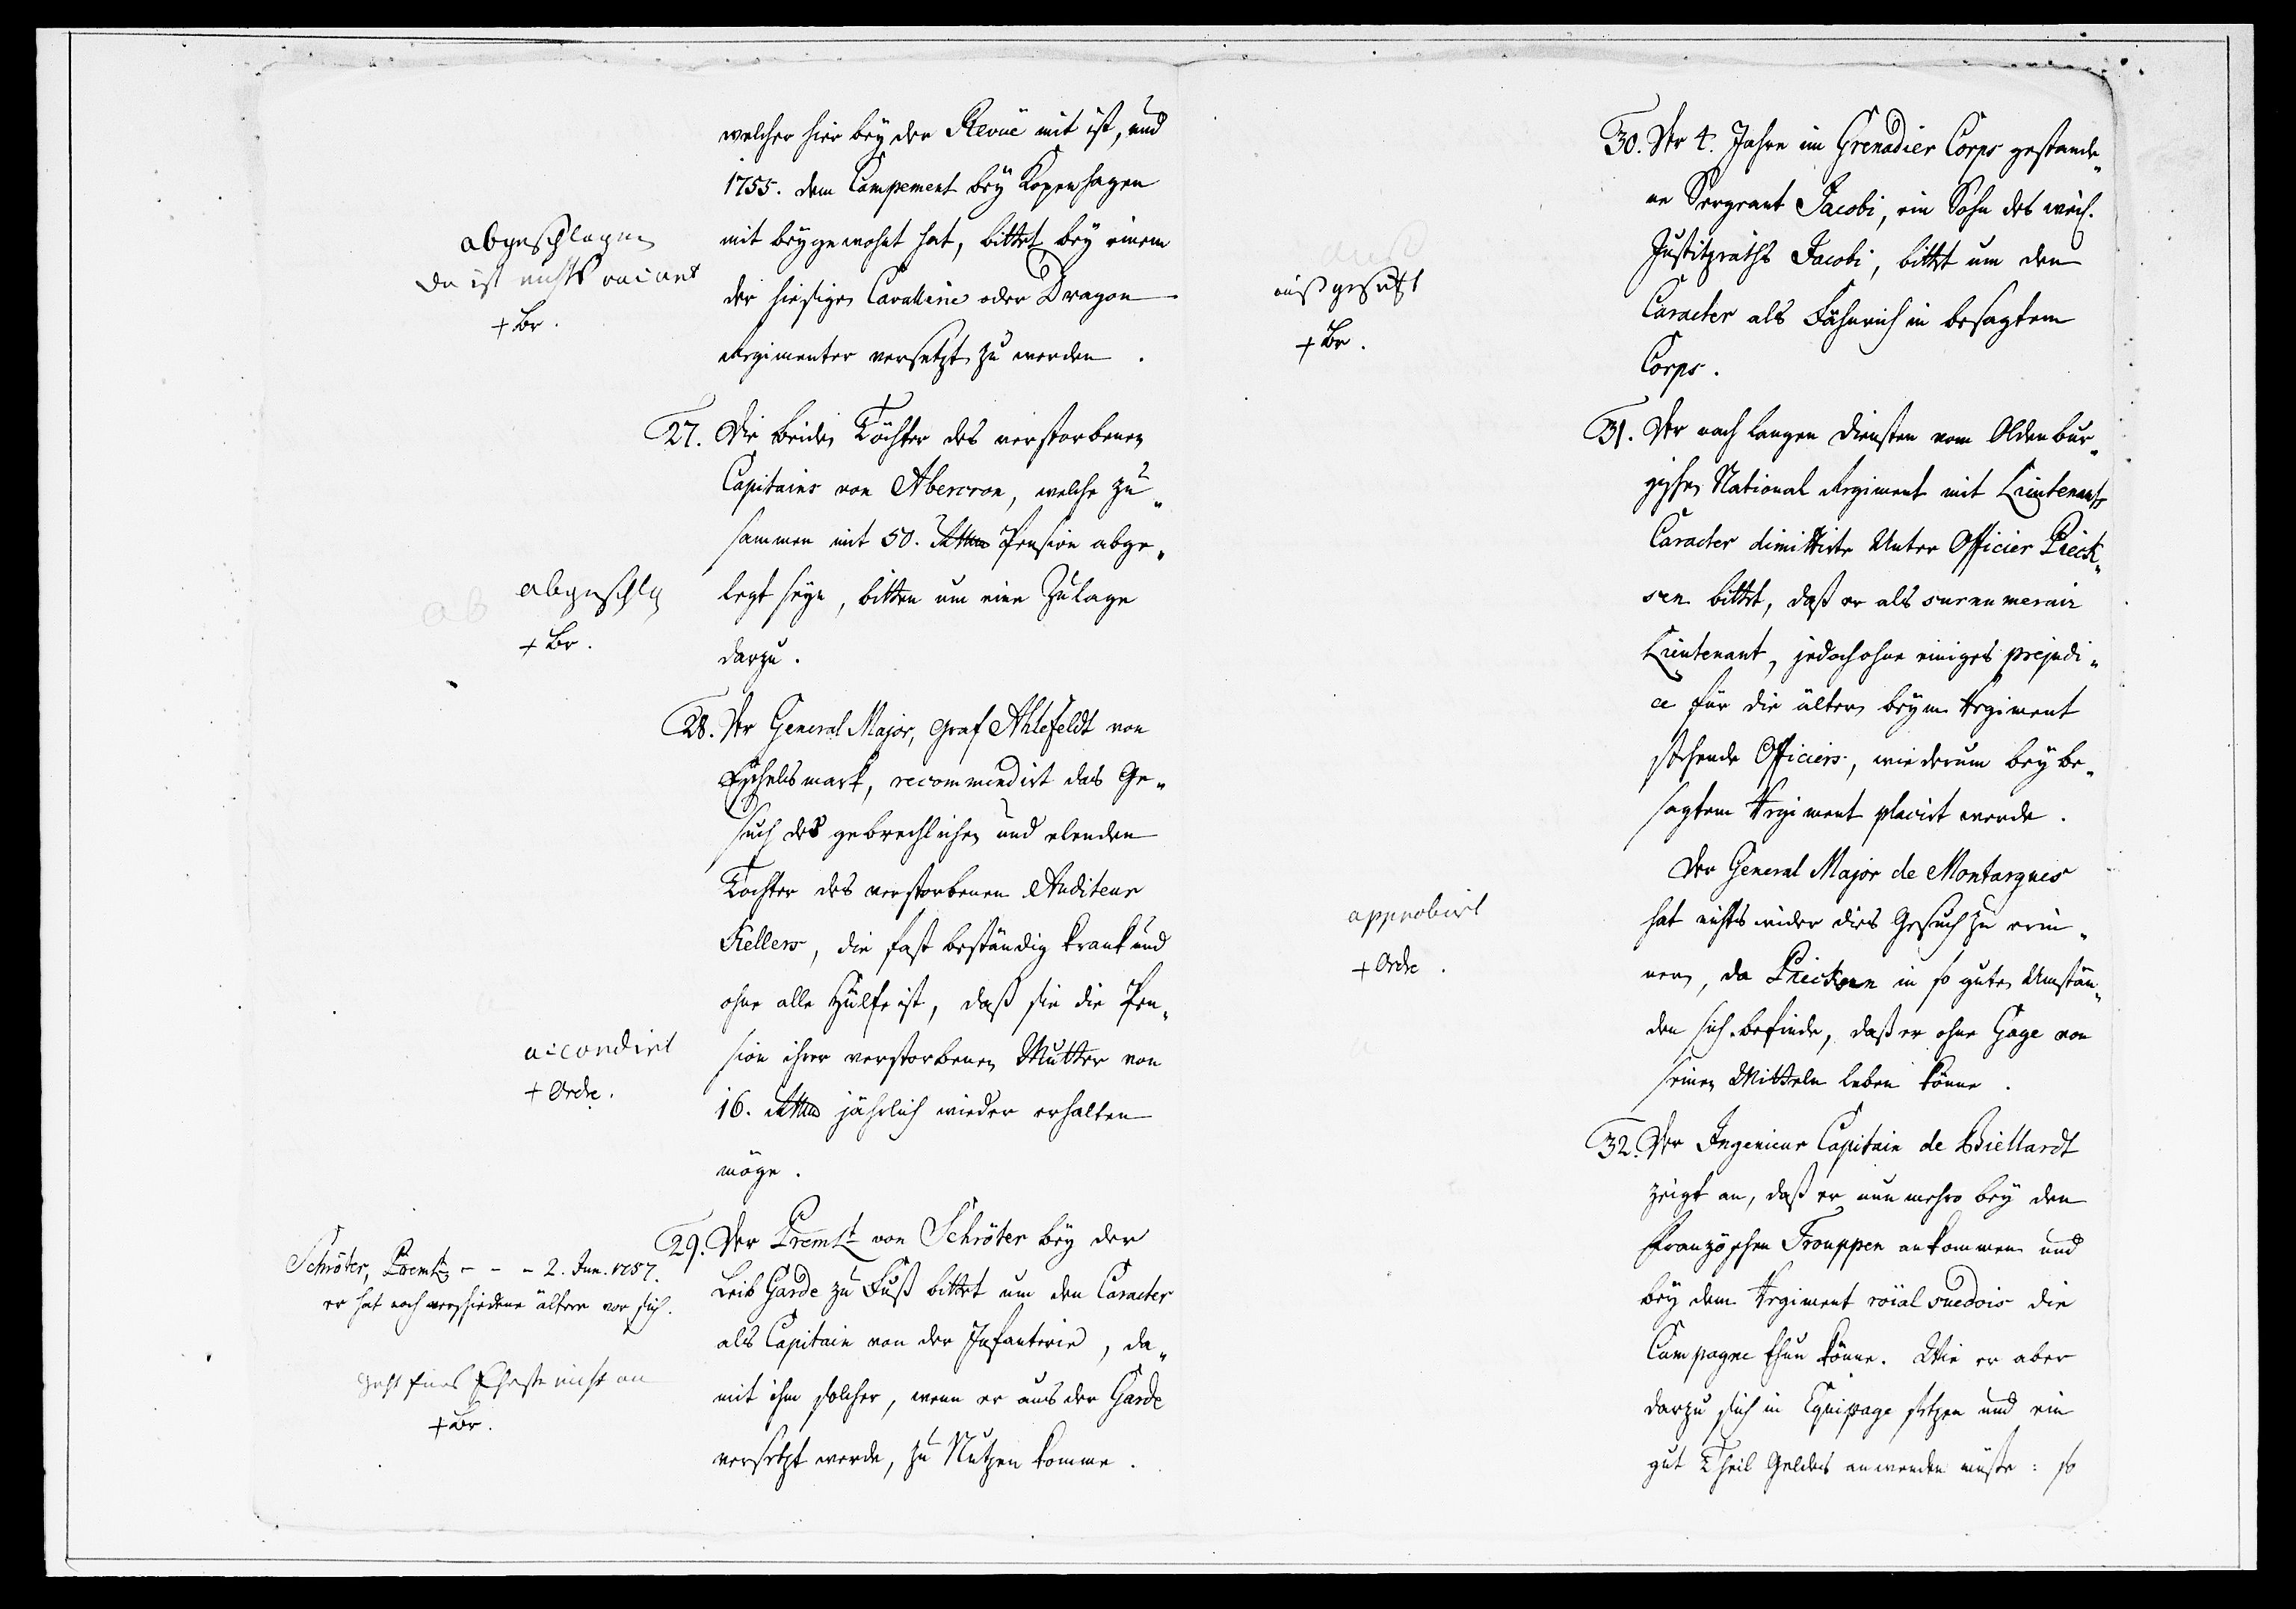 welcher hier bey der Revüe mit ist, und
1755. dem Campement bey Kopenhagen
mit beygewohnt hat, bittet bey einem
der hiesigen Cavallerie oder Dragon
Regimenter versetzt zu werden.
abgeschlagen
da ist nichts vacant
+ Br.
27. Die beiden Töchter des verstorbenen
Capitains von Abercron, welche zu„
sammen mit 50. Rthlr Pension abge„
legt seyn, bitten um eine Zulage
darzu.
abgeschlag
+ Br.
28. Der General Major, Graf Ahlefeldt von
Eschelsmark, recommendirt das Ge„
such der gebrechlichen und elenden
Tochter des verstorbenen Auditeur
Kellers, die fast beständig krank und
ohne alle Hülfe ist, daß sie die Pen„
sion ihrer verstorbenen Mutter von
16. Rthlr jährlich wieder erhalten
möge.
accordirt
+ Ordre.
29. Der Premlt von Schröter bey der
Leib Garde zu Fuß bittet um den Caracter
als Capitain von der Infanterie, da„
mit ihm solcher, wenn er aus der Garde
versetzt werde, zu Nutzen komme.
Schröter, Premlt - - - 2. Jun. 1757.
er hat noch verschiedene ältere vor sich.
geht fürs Erste nicht an
+ Br.
30. Der 4. Jahre im Grenadier Corps gestande„
ne Sergeant Jacobi, ein Sohn des weil.
Justitzraths Jacobi, bittet um den
Caracter als Fähnrich in besagtem
Corps.
außgesetzt
+ Br.
31. Der nach langen Diensten vom Oldenbur„
gischen National Regiment mit Lieutenants
Caracter dimittirte Unter Officier Prieck„
sen bittet, daß er als surnumerair
Lieutenant, jedoch ohne einiges prejudi„
ce für die ältern beym Regiment
stehende Officiers, wiederum bey be„
sagtem Regiment placirt werde.
Der General Major de Montargues
hat nichts wider dies Gesuch zu erin„
nern, da Priecksen in so guten Umstän„
den sich befinde, daß er ohne Gage von
seinen Mitteln leben könne.
approbirt
+ Ordre.
32. Der Ingenieur Capitain de Biellardt
zeigt an, daß er nunmehro bey den
Französchen Trouppen ankommen und
bey dem Regiment roïal suedois die
Campagne thun könne. Wie er aber
darzu sich in Equipage setzen und ein
gut Theil Geldes anwenden müßte: so